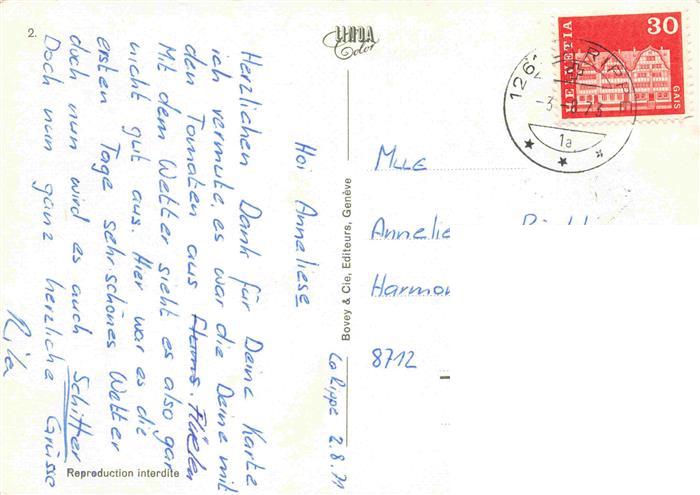 2.
LINDA
Color
HELVETIA
30
GAIS
LA RIPPE
1a
La Rippe 2.8.71
Hoi Anneliese
Herzlichen Dank für Deine Karte
ich vermute es war die Deine mit
den Tomaten aus Flüelen
Mit dem Wetter sieht es also gar
nicht gut aus. Hier war es die
ersten Tage sehr schönes Wetter
doch nun wird es auch Schitter
Doch nun ganz herzliche Grüsse
Rita
Bovey & Cie, Editeurs, Genève
Reproduction interdite
MLLE
Annelie
Harmon
8712